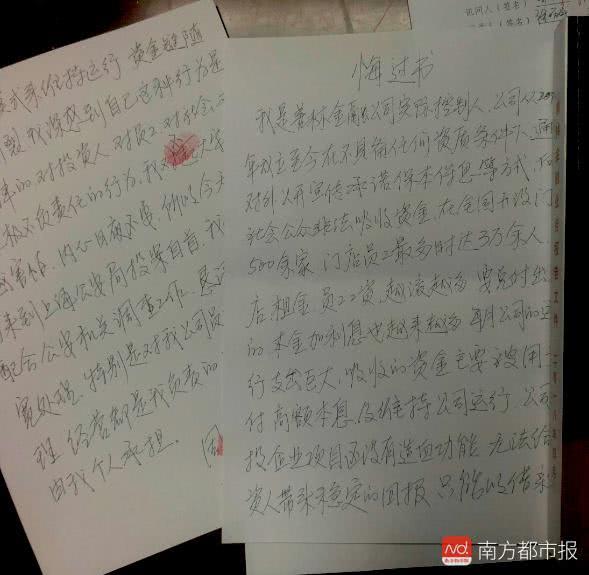 讯问人(签名)
悔过书
我是善林金融公司实际控制人,公司从
年成立至今在不具备任何资质条件下,通
对外公开宣传承诺保本保息等方式,向
社会公众非法吸收资金,在全国开设门
500余家,门店员工最多时达3万余人,
店租金,员工工资,越滚越多,要兑付出
的本金加利息也越来越多,每月公司的运
行支出巨大,吸收的资金主要被用
付高额本息及维持公司运行,公司
投企业项目因没有造血功能,无法给
资人带来稳定的回报,只能以借新
式来维持运行,资金链随
裂,我深感到自己这种行为是
律的,对投资人,对员工,对社会
极不负责任的行为,我
害怕,内心日夜不安,所以今天
来到上海公安局投案自首,我
配合公安机关调查工作,恳请
宽处理,特别是对我公司员
理,经营都是我负责的
由我个人承担。周
南方都市报